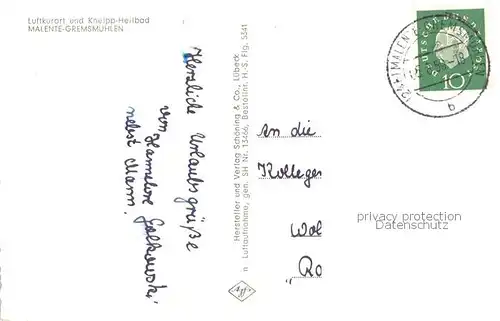 Luftkurort und Kneipp-Heilbad
MALENTE-GREMSMÜHLEN
Herzliche Urlaubsgrüße
von
Hannelore
nebst Mann.
Hersteller und Verlag Schöning & Co., Lübeck
n Luftaufnahme, gen. SH Nr. 13466, Bestellnr. H.-S. Flg. 5341
Agfa
DEUTSCHE BUNDESPOST
10
b
An die
Kollege
Wol
"Ro
privacy protection
Datenschutz